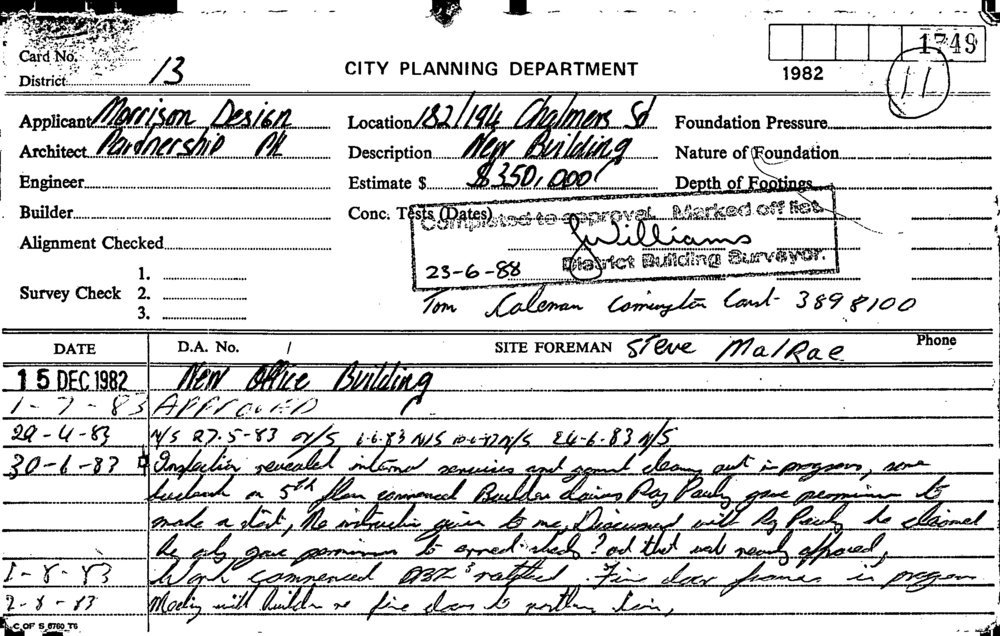 1749
Card No.
District 13
CITY PLANNING DEPARTMENT
1982
11
Applicant Morrison Design
Location 182/194 Chalmers St
Foundation Pressure
Architect Partnership PL
Description New Building
Nature of Foundation
Engineer
Estimate $ $350,000
Depth of Footings
Builder
Conc. Tests (Dates)
Completed to approval. Marked off list.
Alignment Checked
Williams
23-6-88 District Building Surveyor.
Survey Check
1.
2.
3.
Tom Coleman Const- 389 8100
DATE
D.A. No.
SITE FOREMAN Steve MalRae
Phone
15 DEC 1982 New Office Building
1-7-83 APPROVED
29-4-83 N/S 27.5-83 N/S 1-6-83 N/S N/S 24-6-83 N/S
30-6-83 Inspection revealed internal services and general cleaning out in progress, some
on 5th floor commenced Builder claims Ray Pauly gave permission to
make a start, No instruction given to me, Discussed with Ray Pauly he claimed
he only gave permission to sheds ? nearly approved,
1-8-83 Work commenced Fire door frames in progress
2-8-83 with builder re fire doors to
C OF S 6760_T6